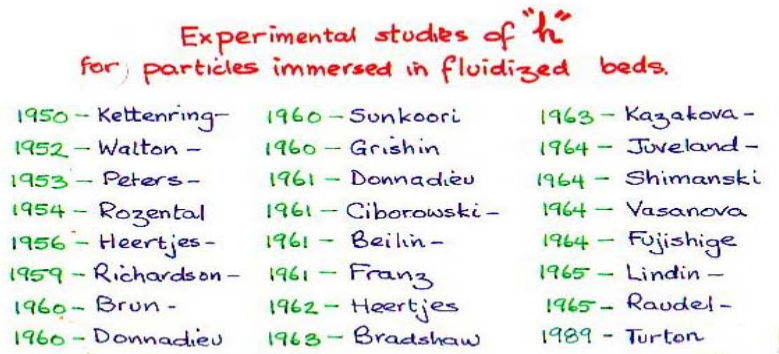 Experimental studies of "h"
for particles immersed in fluidized beds.
1950 - Kettenring -
1952 - Walton -
1953 - Peters -
1954 - Rozental
1956 - Heertjes -
1959 - Richardson -
1960 - Brun -
1960 - Donnadieu
1960 - Sunkoori
1960 - Grishin
1961 - Donnadieu
1961 - Ciborowski -
1961 - Beilin -
1961 - Franz
1962 - Heertjes
1963 - Bradshaw
1963 - Kazakova -
1964 - Juveland -
1964 - Shimanski
1964 - Vasanova
1964 - Fujishige
1965 - Lindin -
1965 - Raudel -
1989 - Turton